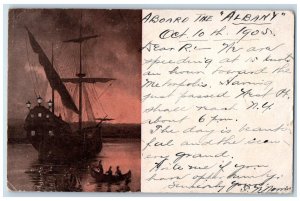 ABOARD THE "ALBANY"
Oct. 10th 1905.
Dear R - We are
speeding at 15 knots
an hour toward the
Metropolis. Having
just passed West Pt.
shall reach N.Y.
about 6 P.M.
The day is beauti-
ful and the scen
ery grand.
Write me if you
have opportunity.
Sincerely yours